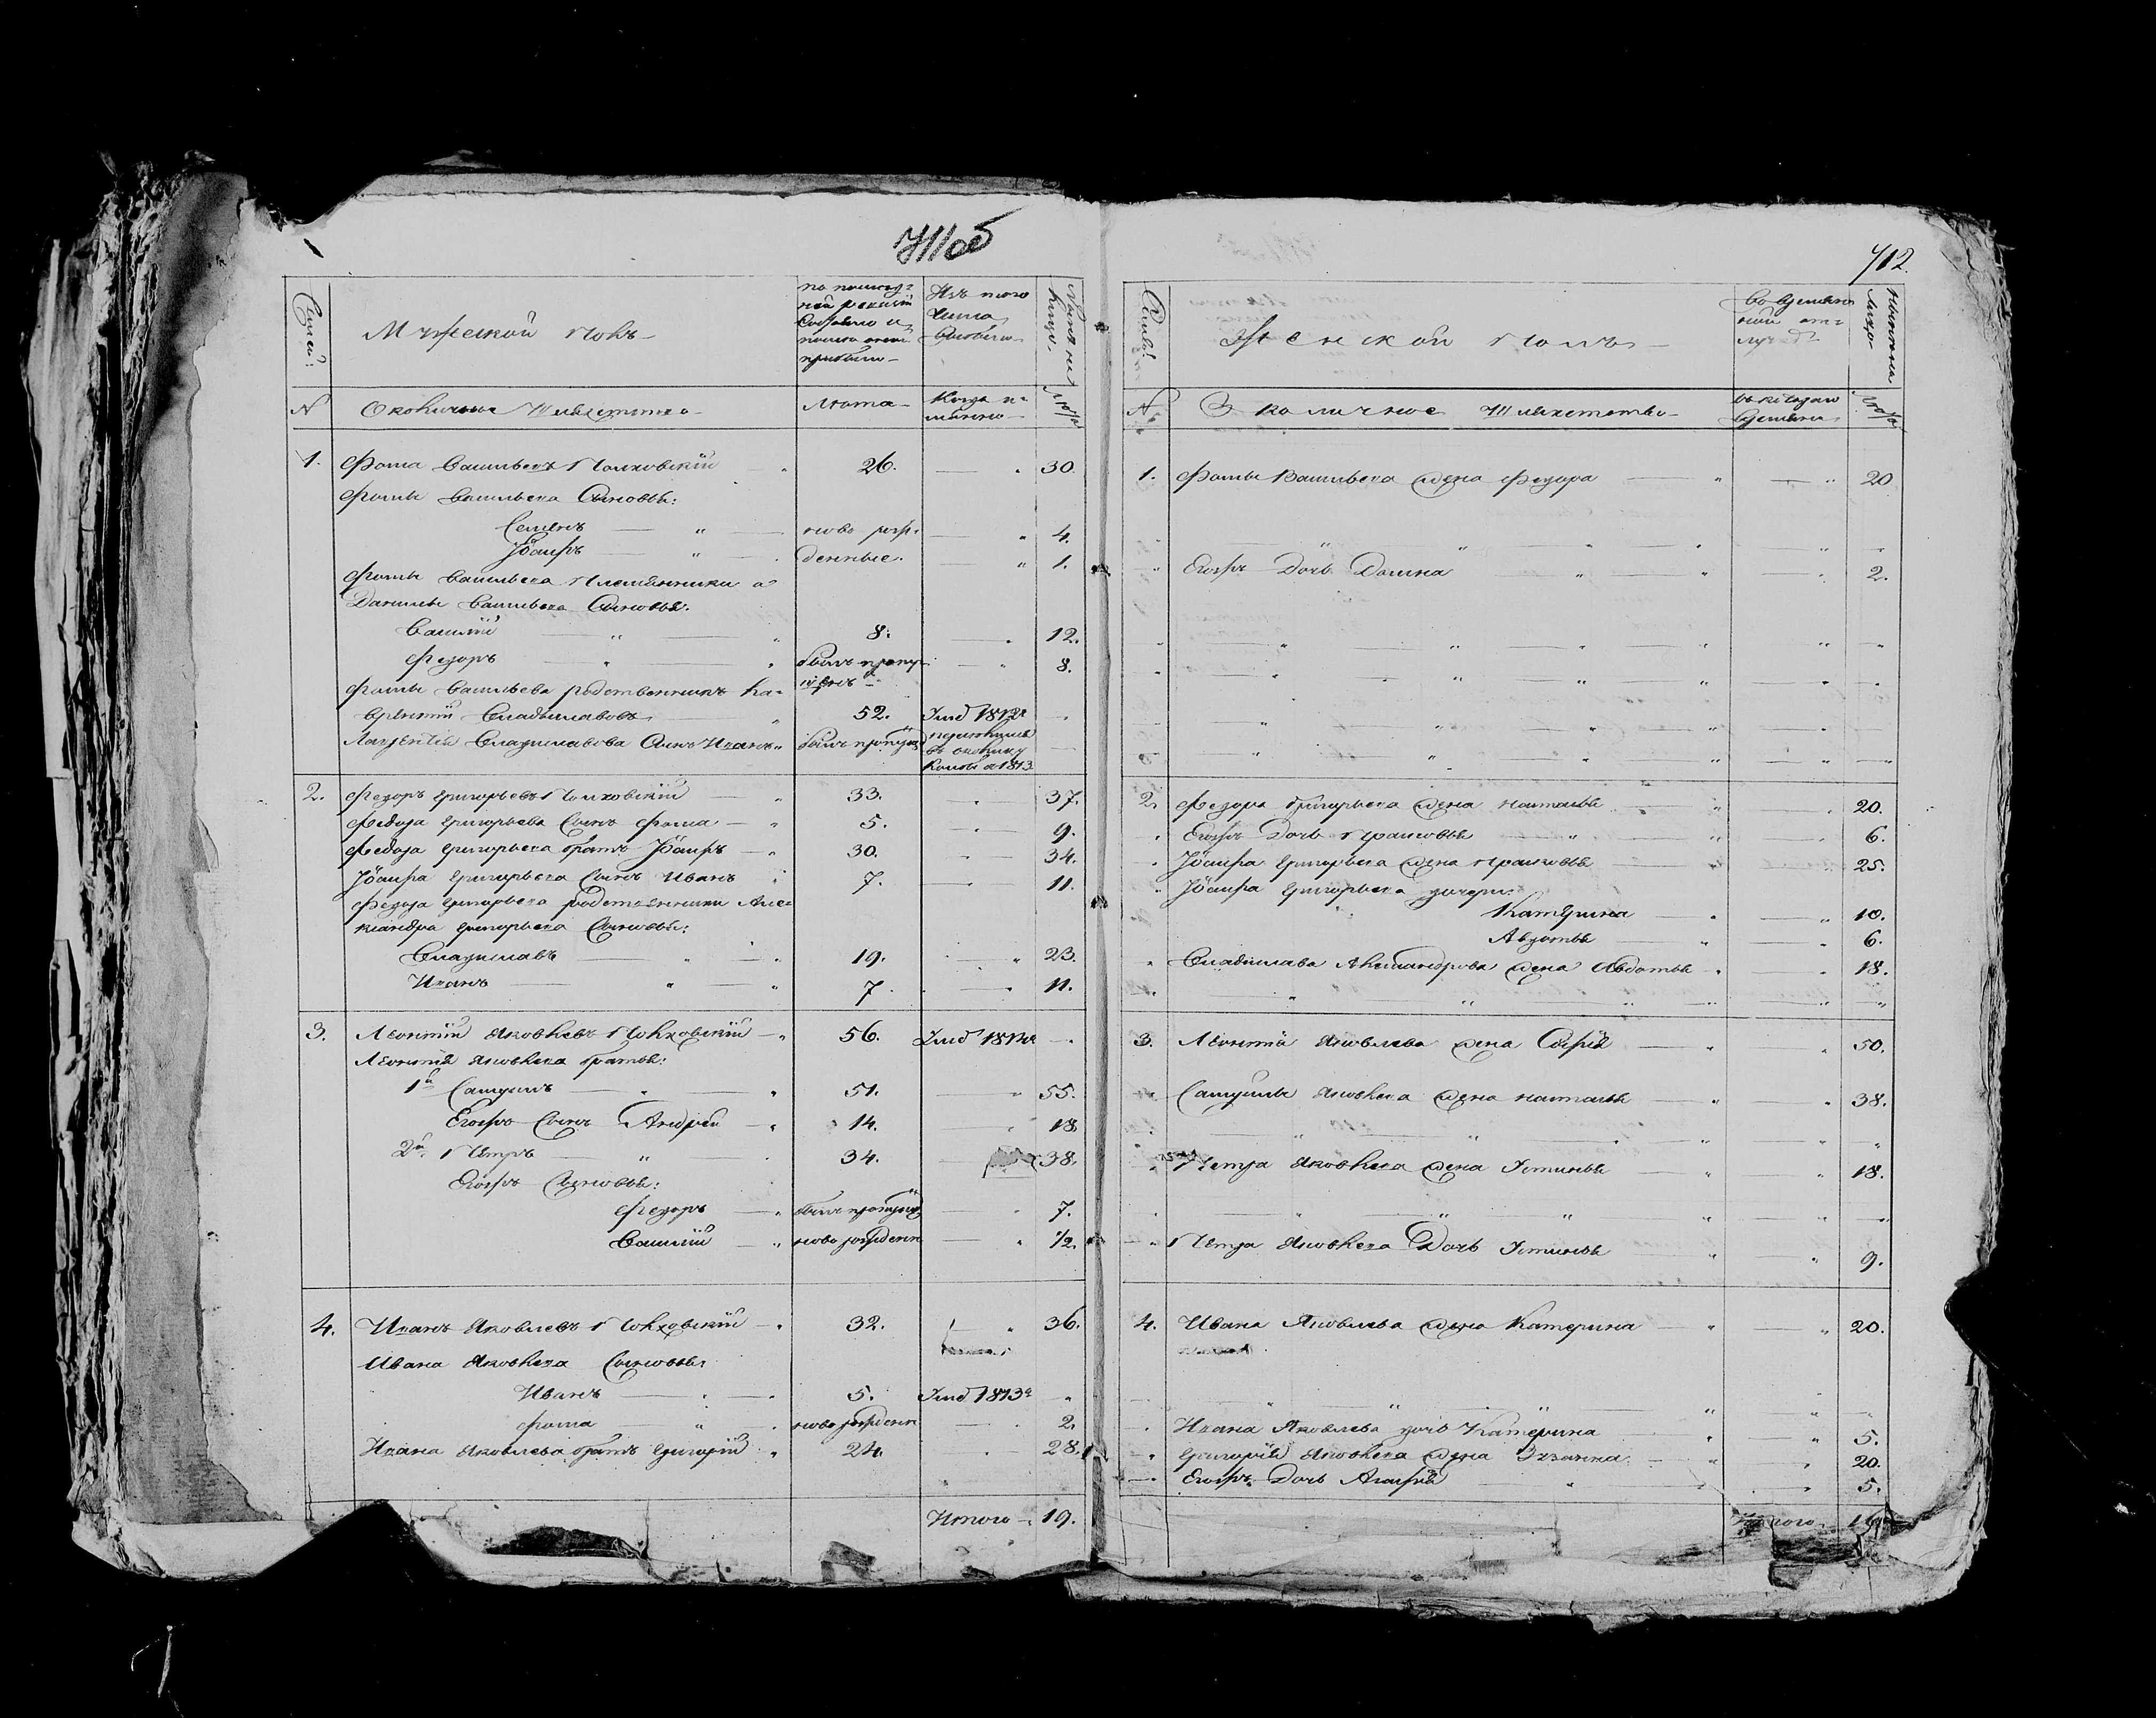 711об
712.
Семей:
Мужеской полъ
по послед-
ней ревизіи
состояло и
после оной
прибыло
Изъ того
числа
выбыло
Ныне на
лицо
№
Околичное Шляхетство
Лета
Когда и-
менно
Лета
1. Фома Васильевъ Полховскій 26. 30.
Фомы Васильева Сыновья:
Семенъ ново рож- 4.
Іосифъ денные. 1.
Фомы Васильева Племянники а
Данилы Васильева Сыновья:
Василій 8. 12.
Федоръ былъ пропу- 8.
щенъ
Фомы Васильева родственникъ Ла-
врентій Владиславовъ 52. Умеръ 1812г
Лаврентія Владиславова Сынъ Иванъ былъ пропущ
1813
2. Федоръ Григорьевъ Полховскій 33. 37.
Федора Григорьева Сынъ Фома 5. 9.
Федора Григорьева братъ Іосифъ 30. 34.
Іосифа Григорьева Сынъ Иванъ 7. 11.
Федора Григорьева родственники Але-
ксандра Григорьева Сыновья:
Владиславъ 19. 23.
Иванъ 7. 11.
3. Леонтій Яковлевъ Полховскій 56. Умеръ 1812г
Леонтія Яковлева братья:
1й Самуилъ 51. 55.
Егоже Сынъ Андрей 14. 18.
2й Петръ 34. 38.
Егоже Сыновья:
Федоръ былъ пропущ 7.
Василій ново рожденн 1/2.
4. Иванъ Яковлевъ Полховскій 32. 36.
Ивана Яковлева Сыновья
Иванъ 5. Умеръ 1813г
Фома ново рожденн 2.
Ивана Яковлева братъ Григорій 24. 28.
Итого 19.
Семей:
Женской полъ
во времен-
ной от-
лучке
Ныне на
лицо
№
Околичное Шляхетство
съ котораго
времени
Лета
1. Фомы Васильева жена Федора 20
Егоже Дочь Домна 2.
2. Федора Григорьева жена Наталья 20.
Егоже Дочь Прасковья 6.
Іосифа Григорьева жена Прасковья 25.
Іосифа Григорьева дочери
Катерина 10.
Авдотья 6.
Владислава Александрова жена Авдотья 18.
3. Леонтія Яковлева жена Софія 50.
Самуилы Яковлева жена Наталья 38.
Петра Яковлева жена Устинья 18.
Петра Яковлева Дочь Устинья 9.
4. Ивана Яковлева жена Катерина 20.
Ивана Яковлева дочь Катерина 5.
Григорія Яковлева жена 20.
Егоже Дочь Агафія 5.
Итого